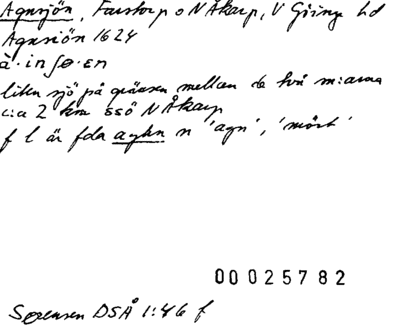 Agnsjön, Farstorp o N Åkarp, V Göinge hd
Agnsiön 1624
liten sjö på gränsen mellan de två m:arna
c:a 2 km SSÖ N Åkarp
f l är fda aghn n 'agn', 'mört'
00025782
Sørensen DSÅ 1:46 f